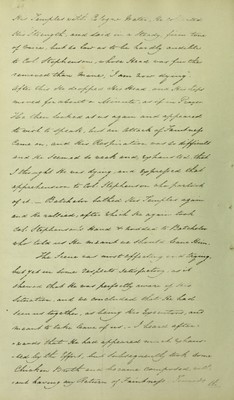 His Temples with Cologne Water, He
His Strength, and said in a steady, firm tone
of voice, but so low as to be hardly audible
to Col. Stephenson, whose Head was further
removed than mine, I am now dying.
After this He dropped His Head and His Lips
moved for about a Minute, as if in Prayer
He then looked at us again and appeared
to wish to speak, but an attack of Faintness
came on, and His Respiration was so difficult
and He seemed so weak and exhausted, that
I thought He was dying, and expressed that
apprehension to Col. Stephenson who partook
of it. Batchelor bathed His Temples again
and He rallied, after which He again took
Col. Stephenson's Hand & nodded to Batchelor
who told us He meant we should leave Him.
The scene was most affecting and trying,
but yet in some respects satisfactory, as it
shewed that He was perfectly aware of His
situation, and we concluded that He had
seen us together, as being His Executors, and
meant to take leave of us. I heard after-
wards that He had appeared much exhaus-
ted by the effort, but subsequently took some
Chicken Broth and became composed
and having any Return of Faintness